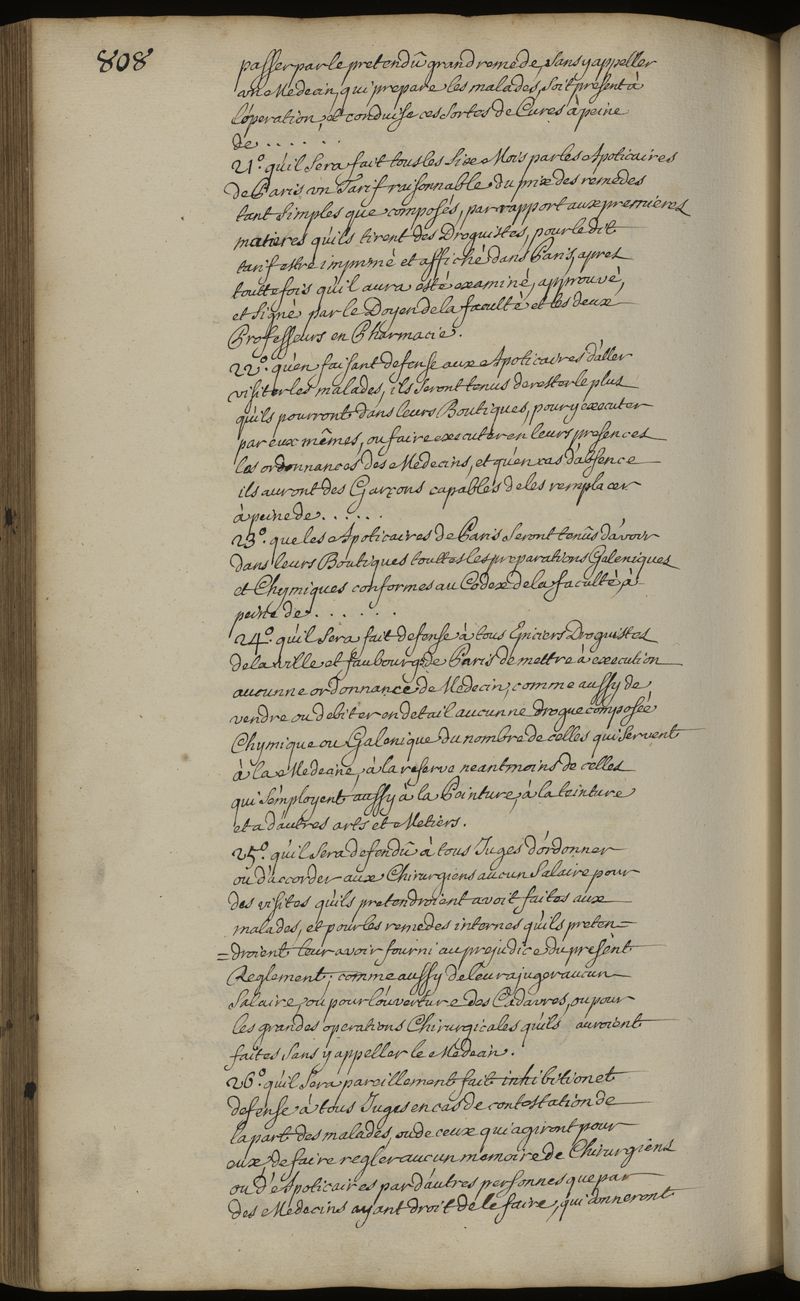 808
passer par le pretendû grand remede, sans y appeller
un Medecin, qui prepare les malades, soit present à
l'operation et conduise ces sortes de Cures à peine
de . . . . . .
21º. qu'il sera fait tous les six Mois par les Apoticaires
de Paris un Tarif raisonnable du prix des remedes
tant simples que composés, par rapport aux premieres
matieres qu'ils tirent des Droguistes, pour le dit
tarif estre imprimé et affiché dans Paris, apres
touttefois qu'il aura esté examiné, approuvé,
et signé par le Doyen de la faculté et les deux
Professeurs en Pharmacie.
22º. qu'en faisant defense aux Apoticaires d'aller
visiter les malades, ils seront tenus de rester le plus
qu'ils pourront dans leurs Boutiques, pour y executer
par eux mêmes, ou faire executer en leurs presences
les ordonnances des Medecins, et qu'en cas d'absence
ils auront des Garçons capables de les remplacer
à peine de . . . . . .
23º. que les Apoticaires de Paris seront tenûs d'avoir
dans leurs Boutiques touttes les preparations Galeniques
et Chymiques conformes au Codex de la faculté à
peine de . . . . . .
24º. qu'il sera fait defense à tous Epiciers Droguistes
de la ville et faubourgs de Paris de mettre à execution
aucunne ordonnance de Medecin; comme aussy de
vendre ou debiter en detail aucunne drogue composée
Chymique ou Galenique du nombre de celles qui servent
à la Medecine, à la reserve neantmoins de celles
qui s'employent aussy à la Peinture, à la teinture
et a d'autres arts et Metiers.
25º. qu'il sera defendû à tous Juges d'ordonner
ou d'accorder aux Chirurgiens aucun salaire pour
des visites qu'ils pretendroient avoir faites aux
malades, et pour les remedes internes qu'ils preten=
=droient leur avoir fourni au prejudice du present
Reglement; comme aussy de leur ajuger aucun
salaire, ou pour l'ouverture des Cadavres, ou pour
les grandes operations Chirurgicales qu'ils auroient
faites sans y appeller le Medecin.
26º. qu'il sera pareillement fait inhibition et
defense à tous Juges en cas de contestation de
la part des malades, ou de ceux qui agiront pour
eux de faire regler aucun memoire de Chirurgiens
ou d'Apoticaires par d'autres personnes que par
des Medecins ayant droit de le faire, qui donneront